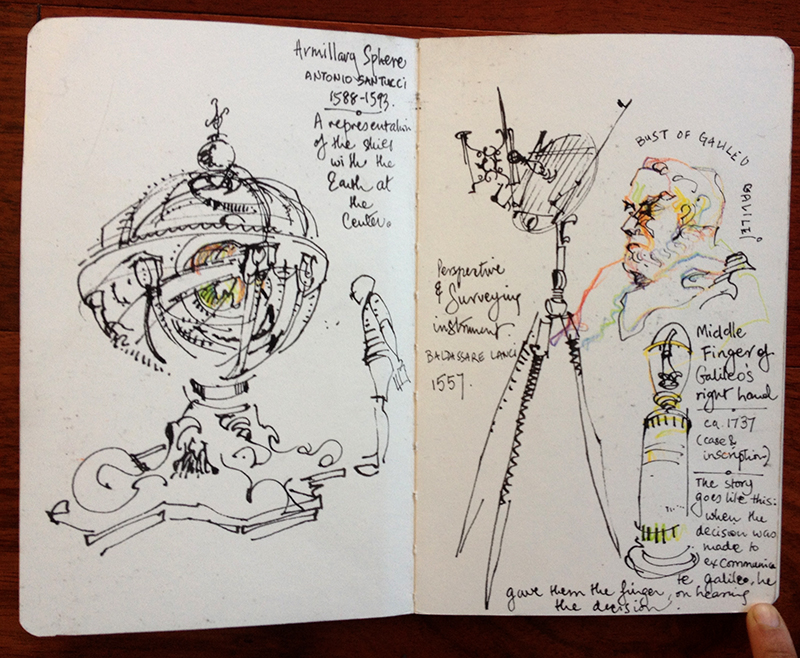 Armillary Sphere
ANTONIO SANTUCCI
1588-1593.
A representation
of the skies
with the
Earth at
the
Center.
Perspective
& Surveying
instrument
BALDASSARE LANCI
1557.
BUST OF GALILEO GALILEI
Middle
Finger of
Galileo's
right hand
ca. 1737
(case &
inscription)
The story
goes like this:
when the
decision was
made to
excommunica
te galileo, he
gave them the finger, on hearing
the decision.